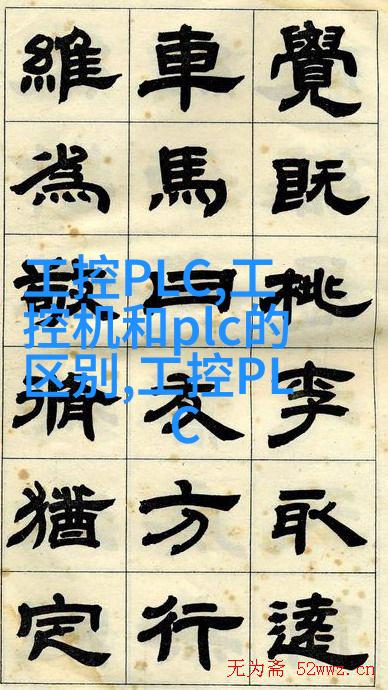 覺既桃李取
車馬曰衣方行
維為猶定
工控PLC,工
控机和plc的
区别,工控PL
C
无为斋 52wwz.cn